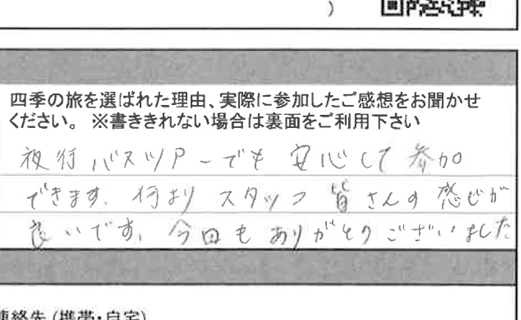 )
四季の旅を選ばれた理由、実際に参加したご感想をお聞かせ
ください。 ※書ききれない場合は裏面をご利用下さい
夜行バスツアーでも安心して参加
できます。何よりスタッフ皆さんの感じが
良いです。今回もありがとうございました
連絡先(携帯・自宅)